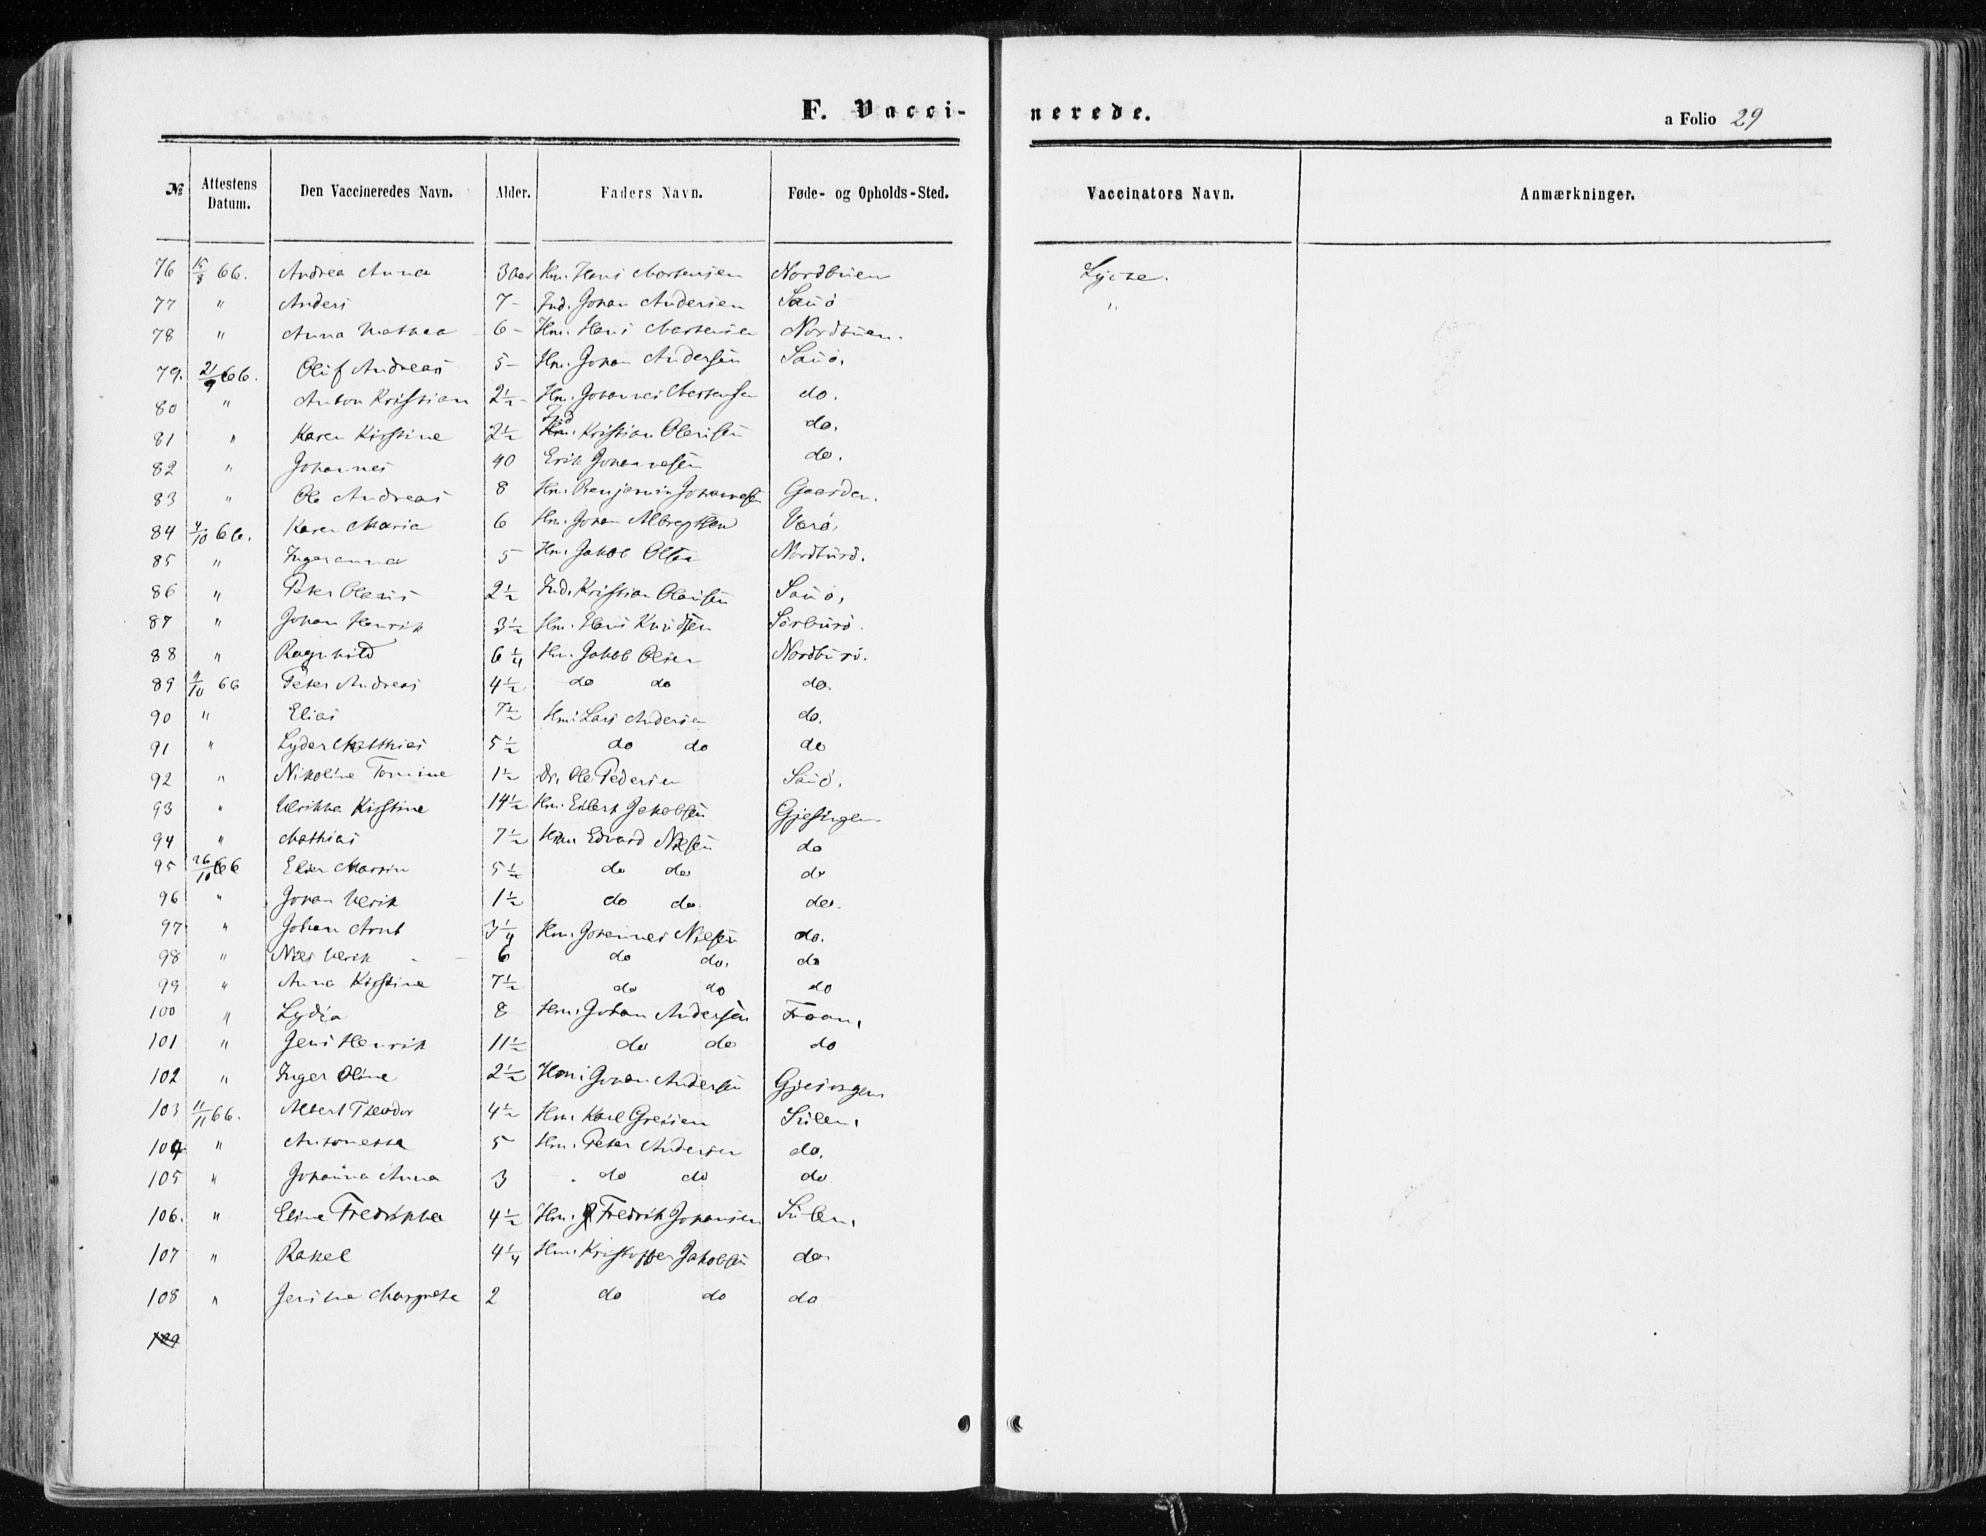 F. Vacci-nerede.
a Folio 29
№ Attestens Datum. Den Vaccineredes Navn. Alder. Faders Navn. Føde- og Opholds-Sted. Vaccinators Navn. Anmærkninger.
76 15/8 66. Andrea Anna 3 aar Hm. Hans Mortensen Nordbuen
77 " Anders 7 - Ind. Johan Andersen Sauø "
78 " Anna Mathea 6 - Hm. Hans Mortensen Nordbuen.
79. 21/9 66. Oluf Andreas 5 - Hm. Johan Andersen Sauø.
80 " Anton Kristian 2 1/2 - Hm. Johannes Mortensen do.
81 " Karen Kirstine 2 1/2 Ind Kristian Olausen do.
82 " Johannes 40 Erik Johannesen do.
83 " Ole Andreas 8 Hm. Benjamin Johannesen Gaarden.
84 4/10 66. Karen Maria 6 Hm. Johan Albregtsen Værø.
85 " Ingeranna 5 Hm. Jakob Olsen Nordburø.
86 " Peter Olaus 2 1/2 Ind. Kristian Olausen Sauø,
87 " Johan Henrik 3 1/2 Hm. Hans Knudsen Sørburø.
88 " Ragnhild 6 1/4 Hm. Jakob Olsen Nordburø.
89 4/10 66 Peter Andreas 4 1/2 do do do.
90 " Elias 7 1/2 Hm. Lars Andersen do.
91 " Lyder Mathias 5 1/2 do do do
92 " Nikoline Tomine 1 1/2 Dr. Ole Pedersen Sauø.
93 " Ulrikka Kirstine 14 1/2 Hm. Ellert Jakobsen Gjesingen
94 " Mathias 7 1/2 Hm Edvard Nilsen do
95 26/10 66 Elen Martin 5 1/2 do do do
96 " Johan Ulrik 1 1/2 do do do.
97 " Johan Arnt 3 1/4 Hm. Johannes Nilsen do.
98 " Nils Ulrik 6 do do. do
99 " Anna Kirstine 7 1/2 do do do
100 " Lydia 8 Hm. Johan Andersen Froan,
101 " Jens Henrik 11 1/2 do do do
102 " Inger Oline 2 1/2 Hm. Johan Andersen Gjesingen
103 11/11 66. Albert Theodor 4 1/2 Hm. Karl Gresien Sulen,
104 " Antonetta 5 Hm. Peter Andersen do.
105 " Johanna Anna 3 do do do
106. " Eline Fredrikka 4 1/2 Hm. Fredrik Johansen Sulen,
107 " Rakel 4 1/4 Hm. Kristoffer Jakobsen do
108 " Jensine Margreta 2 do do do
109